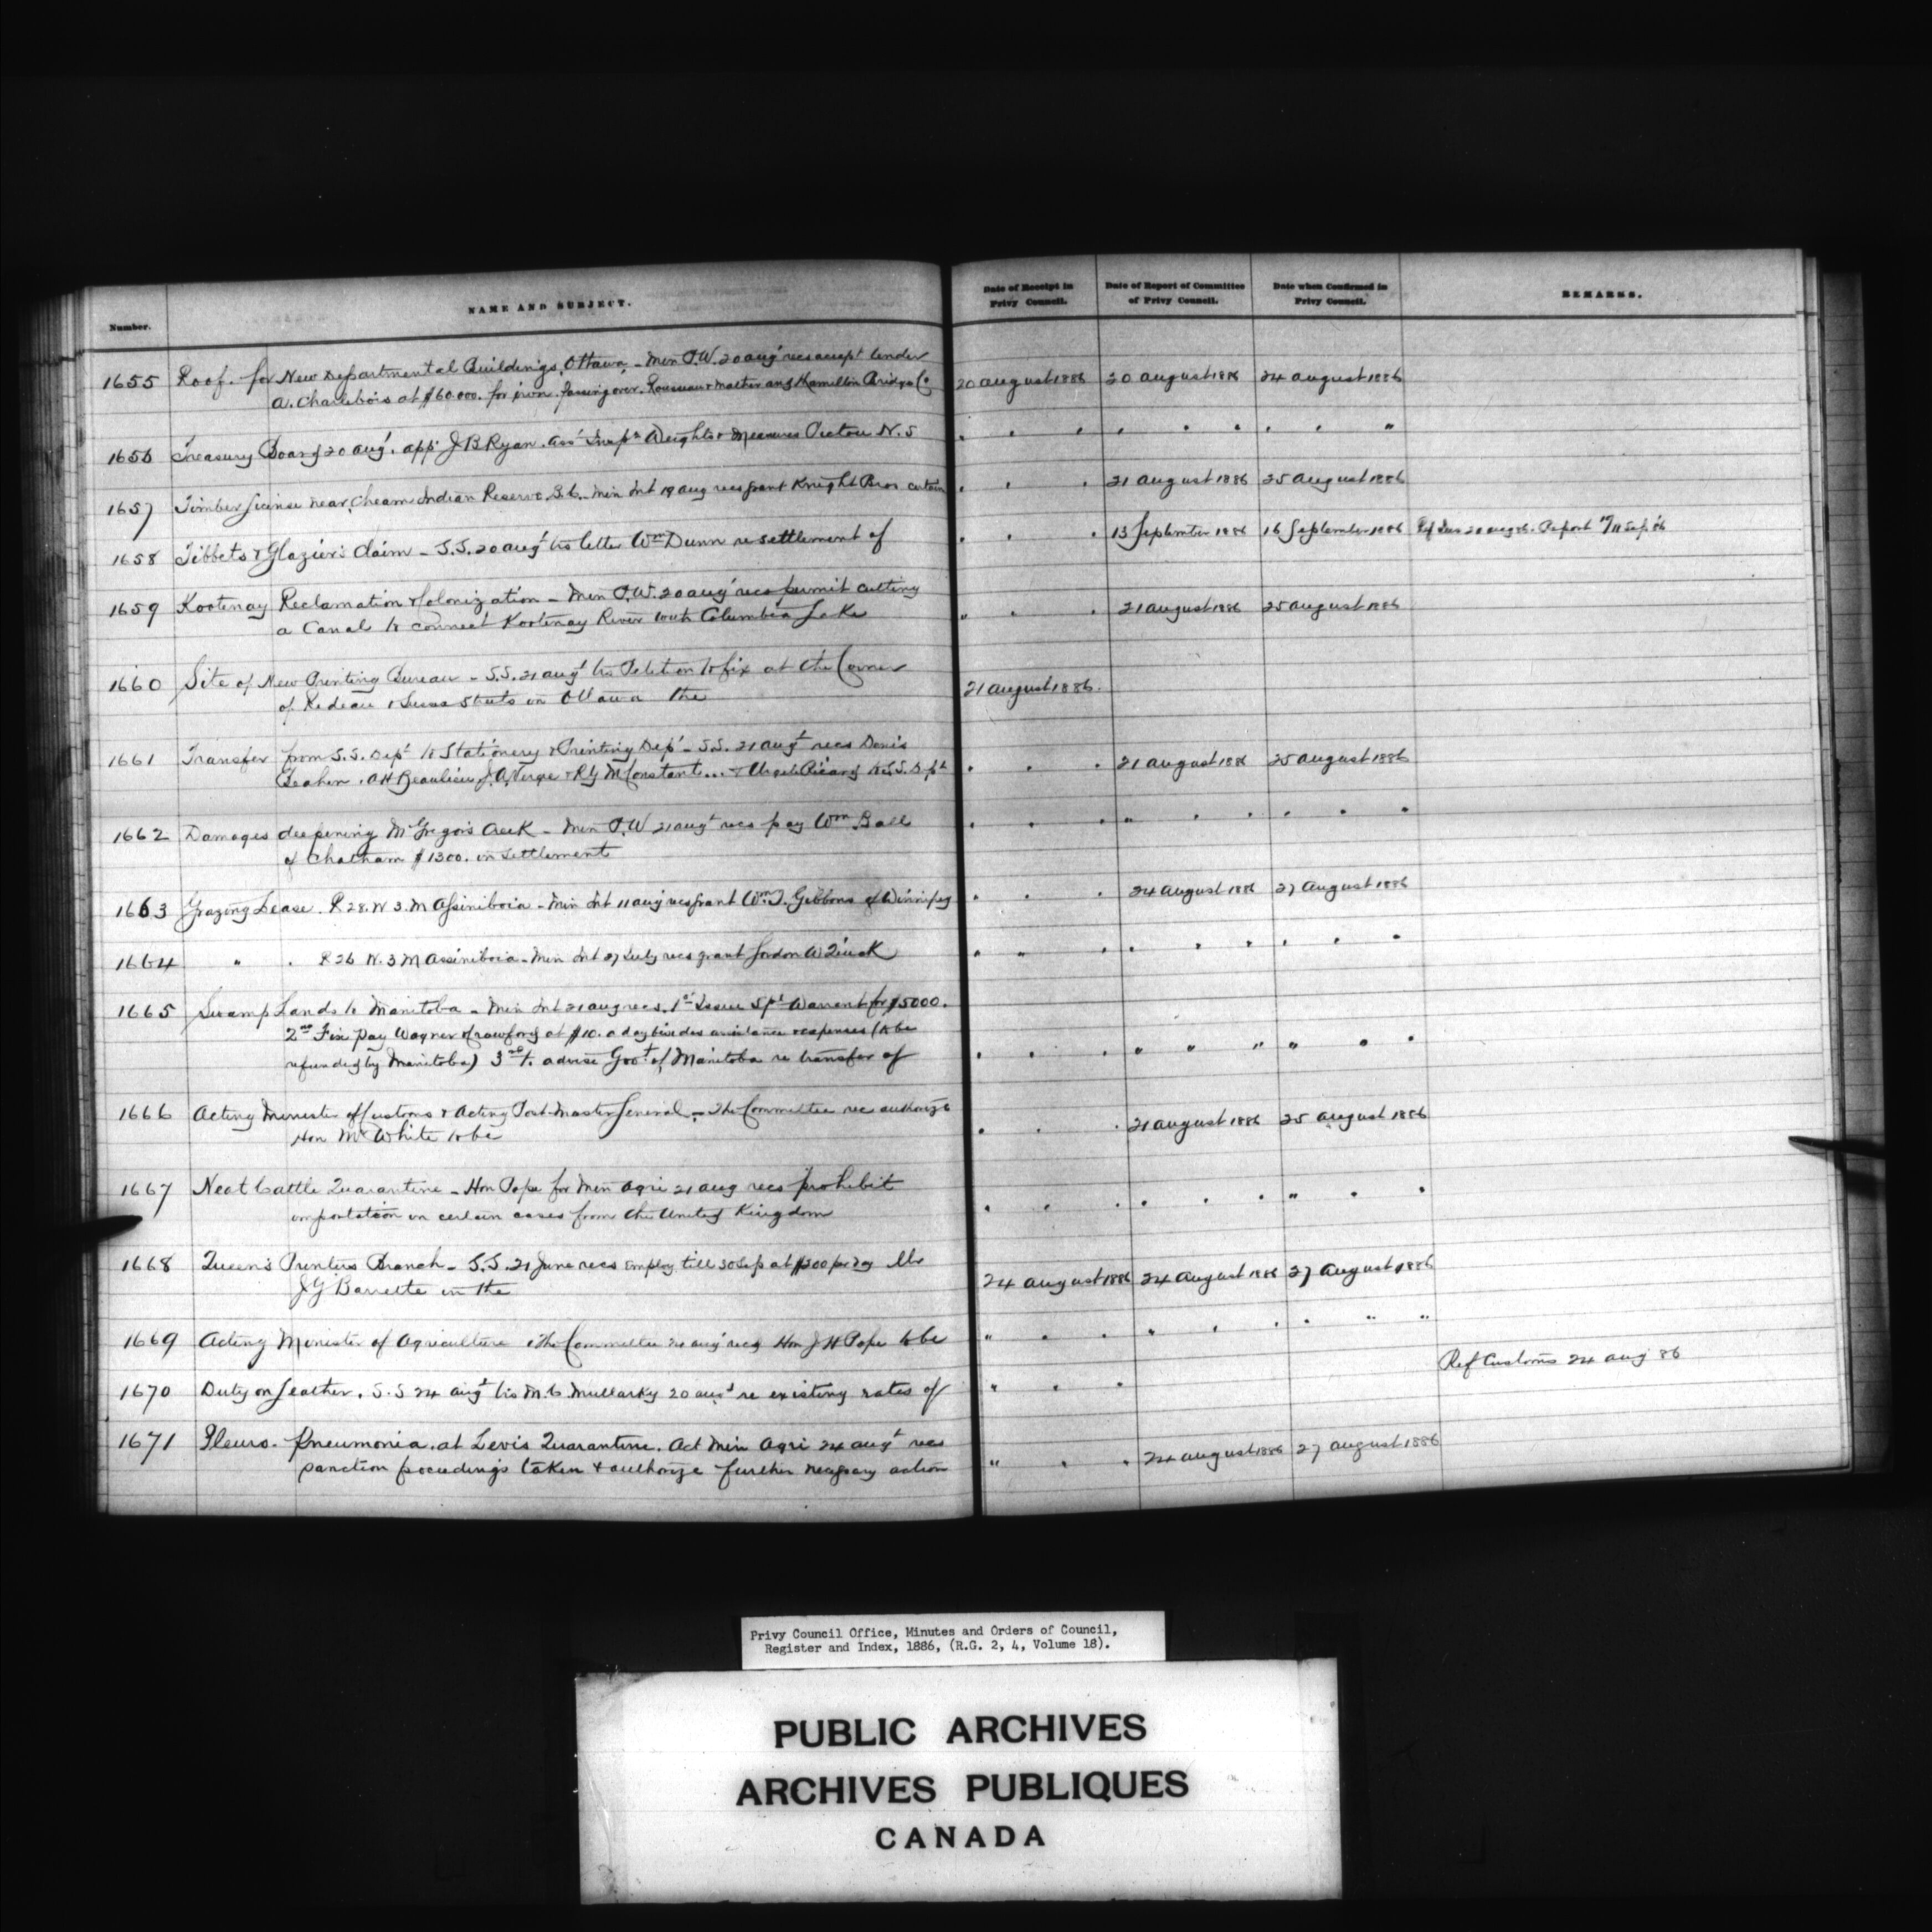 Number. NAME AND SUBJECT. Date of Receipt in Privy Council. Date of Report of Committee of Privy Council. Date when Confirmed in Privy Council. REMARKS.
1655 Roof for New Departmental Buildings, Ottawa - Min P.W. 20 Augt recs accept tender 20 August 1886 20 August 1886 24 August 1886
A. Charlebois at $60.000. for iron. passing over Rousseau & Mather and Hamilton Bridge Co
1656 Treasury Board 20 Augt. appt J B Ryan. Asst Inspr Weights & Measures Pictou N.S " " " " " " " " "
1657 Timber license near Cheam Indian Reserve B.C. - Min Int 19 Aug recs grant Knight Bros certain " " " 21 August 1886 25 August 1886
1658 Tibbets & Glazier's claim - S.S. 20 Augt trs letter Wm Dunn re settlement of " " " 13 September 1886 16 September 1886
1659 Kootenay Reclamation & Colonization - Min P.W. 20 Augt recs permit cutting " " " 21 August 1886 25 August 1886
a Canal to connect Kootenay River with Columbia Lake
1660 Site of New Printing Bureau - S.S. 21 Augt trs Petition to fix at the Corner 21 August 1886.
of Rideau & Streets in Ottawa the
1661 Transfer from S.S. Dept to Stationery & Printing Dept - S.S. 21 Augt recs Denis " " " 21 August 1886 25 August 1886
A H Beaulieu, & R G M Constant & Picard to S.S. Dept
1662 Damages deepening McGregors Creek - Min P.W 21 Augt recs pay Wm Ball " " " " " " " " "
of Chatham $1300. in settlement
1663 Grazing Lease. R 28. W 3. M Assiniboia - Min Int 11 Aug recs grant Wm Gibbons of Winnipeg " " " 24 August 1886 27 August 1886
1664 " " R 26 W. 3 M Assiniboia - Min Int 27 July recs grant Gordon W " " " " " " " " "
1665 Swamp Lands to Manitoba - Min Int 21 Aug recs. 1st Issue Spl Warrant for $5000.
2nd Fix pay Wagner & Crawford at $10. a day besides assistance & expenses (to be
refunded by Manitoba) 3rd To advise Govt of Manitoba re transfer of " " " " " " " " "
1666 Acting Minister of Customs & Acting Post Master General - The Committee rec authorize " " " 21 August 1886 25 August 1886
Hon Mr White to be
1667 Neat Cattle Quarantine - Hon Pope for Min Agri 21 Aug recs prohibit " " " " " " " " "
importation in certain cases from the United Kingdom
1668 Queen's Printers Branch - S.S. 21 June recs employ till 30 Sep at per day Mr 24 August 1886 24 August 1886 27 August 1886
J G Barrette in the
1669 Acting Minister of Agriculture The Committee 24 Augt recs Hon J H Pope to be " " " " " " " " "
1670 Duty on Leather. S.S 24 Augt trs M. C. Mullarky 20 Augt re existing rates of " " " Ref Customs 24 Aug 86
1671 Pleuro-Pneumonia at Levis Quarantine. Act Min Agri 24 Augt recs " " " 24 August 1886 27 August 1886
sanction proceedings taken & authorize further necessary action
Privy Council Office, Minutes and Orders of Council,
Register and Index, 1886, (R.G. 2, 4, Volume 18).
PUBLIC ARCHIVES
ARCHIVES PUBLIQUES
CANADA